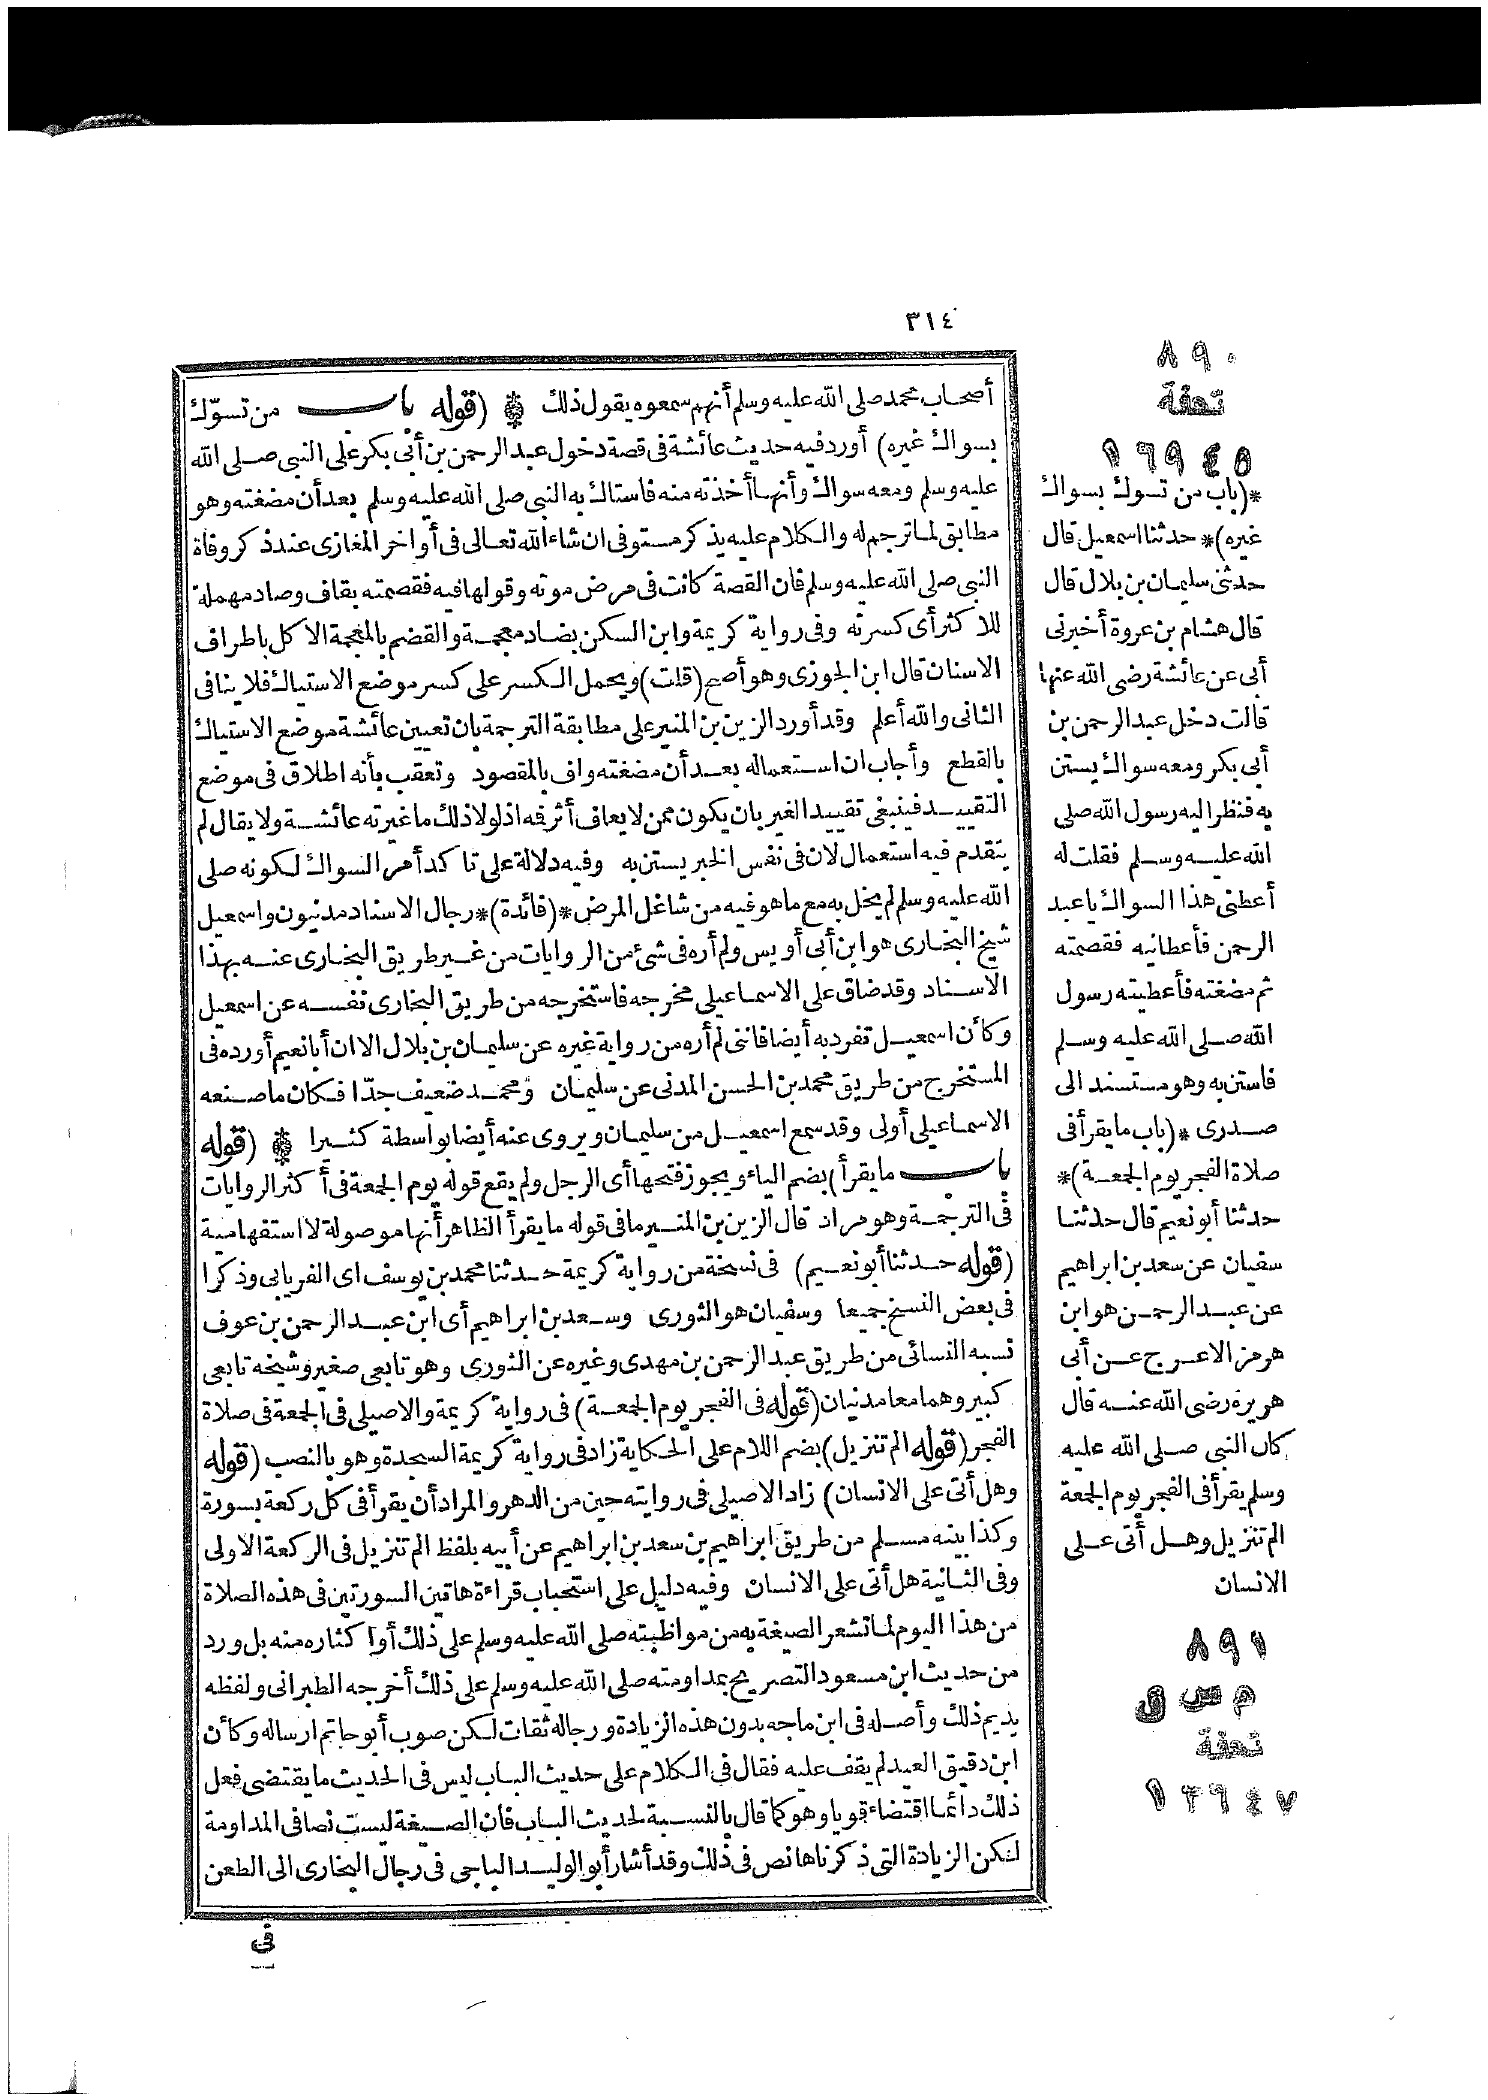 ٣١٤
أصحاب محمد صلى الله عليه وسلم أنهم سمعوه يقول ذلك ۞ (قوله باب من تسوّك
بسواك غيره) أورد فيه حديث عائشة فى قصة دخول عبد الرحمن بن أبى بكر على النبى صلى الله
عليه وسلم ومعه سواك وأنها أخذته منه فاستاك به النبى صلى الله عليه وسلم بعد أن مضغته وهو
مطابق لما ترجم له والكلام عليه يذكر مستوفى ان شاء الله تعالى فى أواخر المغازى عند ذكر وفاة
النبى صلى الله عليه وسلم فان القصة كانت فى مرض موته وقولها فيه فقصمته بقاف وصاد مهملة
للاكثر أى كسرته وفى رواية كريمة وابن السكن بضاد معجمة والقضم بالمعجمة الاكل باطراف
الاسنان قال ابن الجوزى وهو أصح (قلت) ويحمل الكسر على كسر موضع الاستياك فلا ينافى
الثانى والله أعلم وقد أورد الزين بن المنير على مطابقة الترجمة بان تعيين عائشة موضع الاستياك
بالقطع وأجاب ان استعماله بعد أن مضغته واف بالمقصود وتعقب بأنه اطلاق فى موضع
التقييد فينبغى تقييد الغير بان يكون ممن لا يعاف أثر فه اذ لولا ذلك ما غيرته عائشة ولا يقال لم
يتقدم فيه استعمال لان فى نفس الخبر يستن به وفيه دلالة على تاكد أمر السواك لكونه صلى
الله عليه وسلم لم يخل به مع ما هو فيه من شاغل المرض *(فائدة)* رجال الاسناد مدنيون واسمعيل
شيخ البخارى هو ابن أبى أويس ولم أره فى شئ من الروايات من غير طريق البخارى عنه بهذا
الاسناد وقد ضاق على الاسماعيلى مخرجه فاستخرجه من طريق البخارى نفسه عن اسمعيل
وكأن اسمعيل تفرد به أيضا فاننى لم أره من رواية غيره عن سليمان بن بلال الا ان أبا نعيم أورده فى
المستخرج من طريق محمد بن الحسن المدنى عن سليمان ومحمد ضعيف جدّا فكان ما صنعه
الاسماعيلى أولى وقد سمع اسمعيل من سليمان ويروى عنه أيضا بواسطة كثيرا ۞ (قوله
باب ما يقرأ) بضم الياء ويجوز فتحها أى الرجل ولم يقع قوله يوم الجمعة فى أكثر الروايات
فى الترجمة وهو مراد قال الزين بن المنير ما فى قوله ما يقرأ الظاهر أنها موصولة لا استفهامية
(قوله حدثنا أبو نعيم) فى نسخة من رواية كريمة حدثنا محمد بن يوسف اى الفريابى وذكرا
فى بعض النسخ جميعا وسفيان هو الثورى وسعد بن ابراهيم أى ابن عبد الرحمن بن عوف
نسبه النسائى من طريق عبد الرحمن بن مهدى وغيره عن الثورى وهو تابعى صغير وشيخه تابعى
كبير وهما معا مدنيان (قوله فى الفجر يوم الجمعة) فى رواية كريمة والاصيلى فى الجمعة فى صلاة
الفجر (قوله الم تنزيل) بضم اللام على الحكاية زاد فى رواية كريمة السجدة وهو بالنصب (قوله
وهل أتى على الانسان) زاد الاصيلى فى روايته حين من الدهر والمراد أن يقرأ فى كل ركعة بسورة
وكذا بينه مسلم من طريق ابراهيم بن سعد بن ابراهيم عن أبيه بلفظ الم تنزيل فى الركعة الاولى
وفى الثانية هل أتى على الانسان وفيه دليل على استحباب قراءة هاتين السورتين فى هذه الصلاة
من هذا اليوم لما تشعر الصيغة به من مواظبته صلى الله عليه وسلم على ذلك أو اكثاره منه بل ورد
من حديث ابن مسعود التصريح بمداومته صلى الله عليه وسلم على ذلك أخرجه الطبرانى ولفظه
يديم ذلك وأصله فى ابن ماجه بدون هذه الزيادة ورجاله ثقات لكن صوب أبو حاتم ارساله وكأن
ابن دقيق العيد لم يقف عليه فقال فى الكلام على حديث الباب ليس فى الحديث ما يقتضى فعل
ذلك دائما اقتضاء قويا وهو كما قال بالنسبة لحديث الباب فان الصيغة ليست نصا فى المداومة
لكن الزيادة التى ذكرناها نص فى ذلك وقد أشار أبو الوليد الباجى فى رجال البخارى الى الطعن
فى
٨٩٠
تحفة
١٦٩٤٥
*(باب من تسوك بسواك
غيره)* حدثنا اسمعيل قال
حدثنى سليمان بن بلال قال
قال هشام بن عروة أخبرنى
أبى عن عائشة رضى الله عنها
قالت دخل عبد الرحمن بن
أبى بكر ومعه سواك يستن
به فنظر اليه رسول الله صلى
الله عليه وسلم فقلت له
أعطنى هذا السواك يا عبد
الرحمن فأعطانيه فقصمته
ثم مضغته فأعطيته رسول
الله صلى الله عليه وسلم
فاستن به وهو مستسند الى
صدرى *(باب ما يقرأ فى
صلاة الفجر يوم الجمعة)*
حدثنا أبو نعيم قال حدثنا
سفيان عن سعد بن ابراهيم
عن عبد الرحمن هو ابن
هرمز الاعرج عن أبى
هريرة رضى الله عنه قال
كان النبى صلى الله عليه
وسلم يقرأ فى الفجر يوم الجمعة
الم تنزيل وهل أتى على
الانسان
٨٩١
م س ق
تحفة
١٣٦٤٧